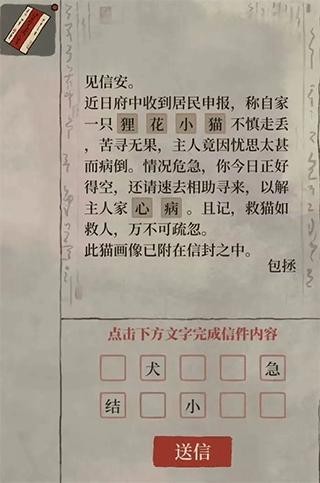 见信安。
近日府中收到居民申报，称自家
一只狸花小猫不慎走丢
，苦寻无果，主人竟因忧思太甚
而病倒。情况危急，你今日正好
得空，还请速去相助寻来，以解
主人家心病。且记，救猫如
救人，万不可疏忽。
此猫画像已附在信封之中。
包拯
点击下方文字完成信件内容
犬 急
结 小
送信